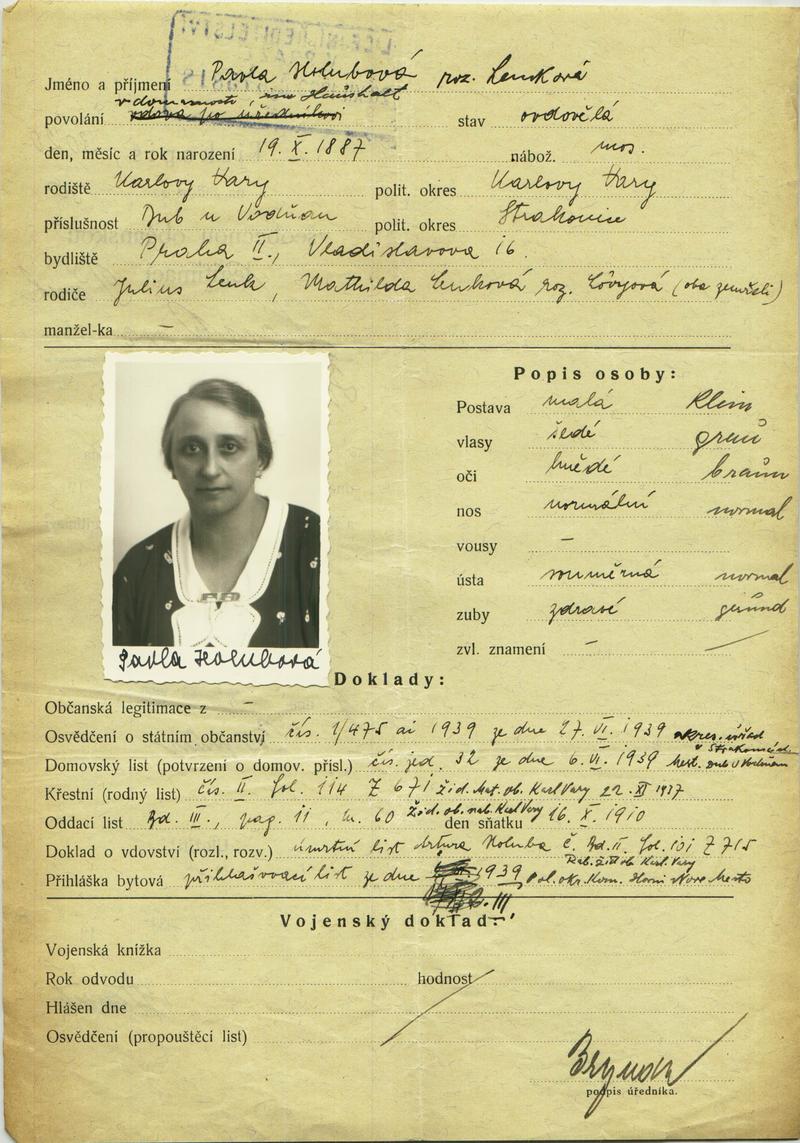 Jméno a příjmení Pavla Holubová roz. Lenková
v domácnosti, im Haushalt
povolání vdova po úředníkovi stav ovdovělá
den, měsíc a rok narození 19. X. 1887 nábož. mos.
rodiště Karlovy Vary polit. okres Karlovy Vary
příslušnost Dub u Vodňan polit. okres Strakonice
bydliště Praha II., Vladislavova 16.
rodiče Julius Lenk, Mathilda Lenková roz. Löwyová (oba zemřeli)
manžel-ka —
Popis osoby:
Postava malá klein
vlasy šedé grau
oči hnědé braun
nos normální normal
vousy —
ústa souměrná normal
zuby zdravé gesund
zvl. znamení —
Pavla Holubová
Doklady:
Občanská legitimace z —
Osvědčení o státním občanství čís. 1/475 ai 1939 ze dne 27. VI. 1939 okres. úřad
v Strakonicích
Domovský list (potvrzení o domov. přísl.) čís. jed. 32 ze dne 6. VI. 1939 Dub u Vodňan
Křestní (rodný list) čís. II. fol. 114 Z 671 Žid. Mat. ob. Karl Vary 22. XI 1937
Oddací list Bd. III., pag. 11, n. 60 Žid. ob. nab. Karl Vary den sňatku 16. X. 1910
Doklad o vdovství (rozl., rozv.) úmrtní list Artura Holuba č. Bd. II. fol. 101 Z 715
Rab. Žid ob Karl. Vary
Přihláška bytová přihlašovací list ze dne 1939 Pol. okr. Kom. Horní Nové Město
III
Vojenský doklad:
Vojenská knížka
Rok odvodu hodnost
Hlášen dne
Osvědčení (propouštěcí list)
podpis úředníka.